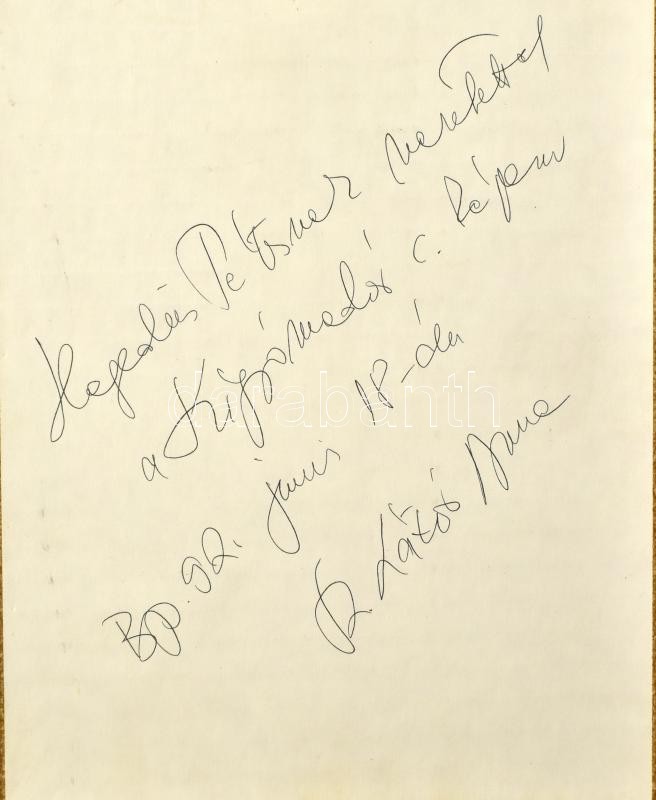 Hegedüs Péternek szeretettel
a Kígyómadár c. képem
Bp. 92. június 18-án
R. Látó Anna
darabanth